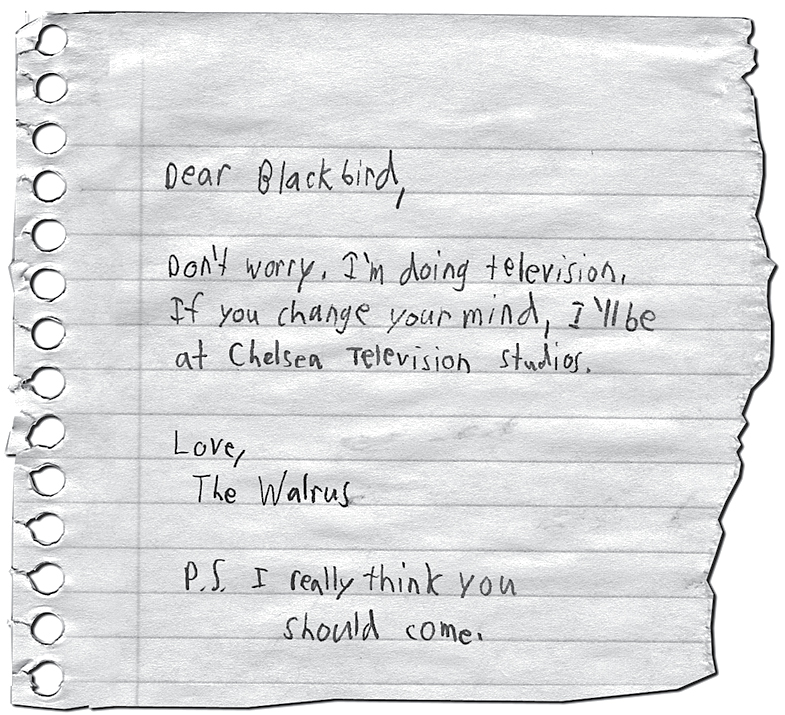 Dear Blackbird,
Don't worry. I'm doing television.
If you change your mind, I'll be
at Chelsea Television Studios.
Love,
The Walrus
P.S. I really think you
should come.